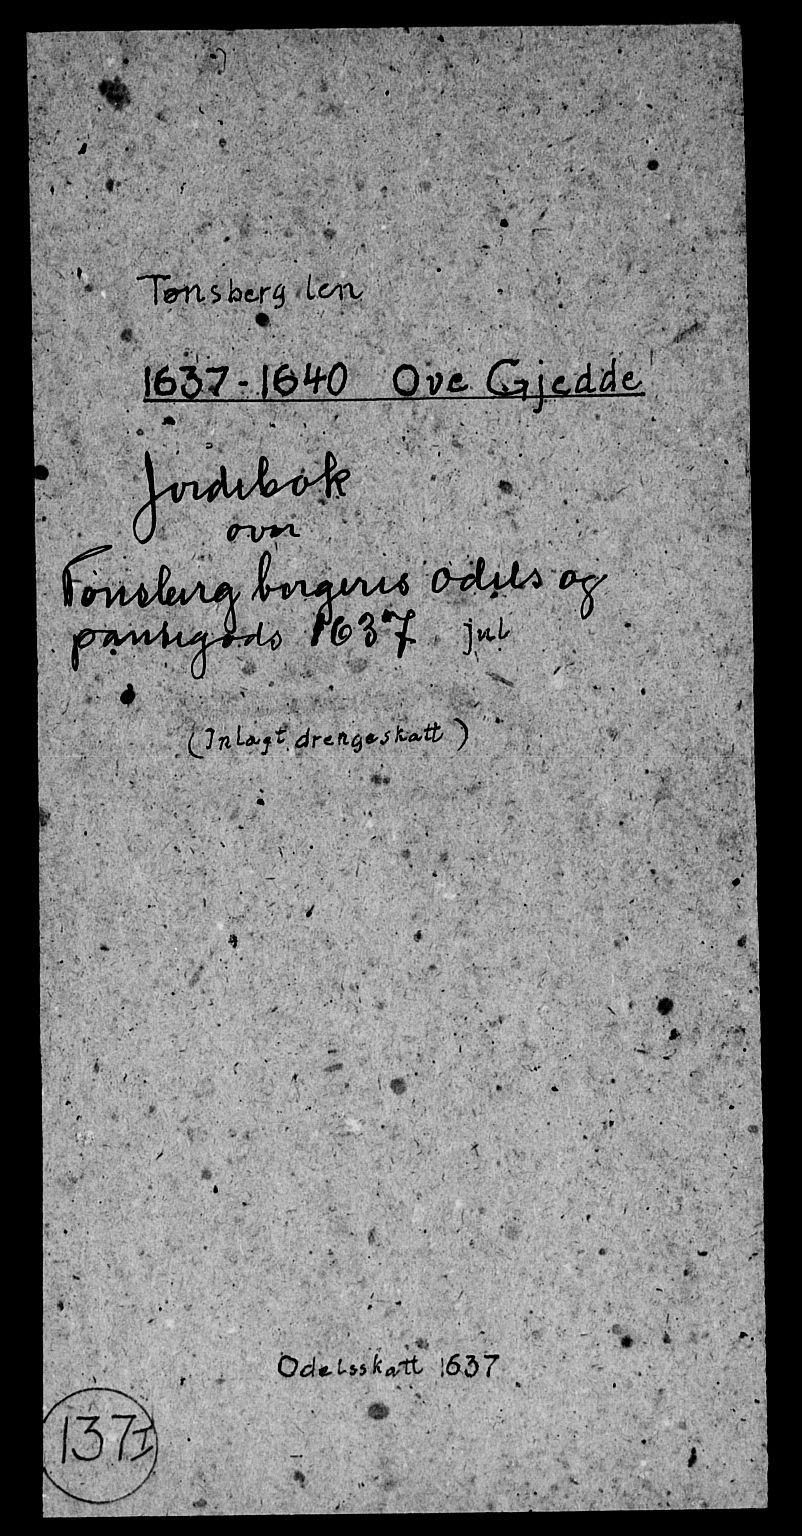 Tønsberg len
1637-1640 Ove Gjedde
Jordebok
over
Tønsberg borgeres odels og
pantegods 1637 jul
(Inlagt drengeskatt)
Odelsskatt 1637
137I